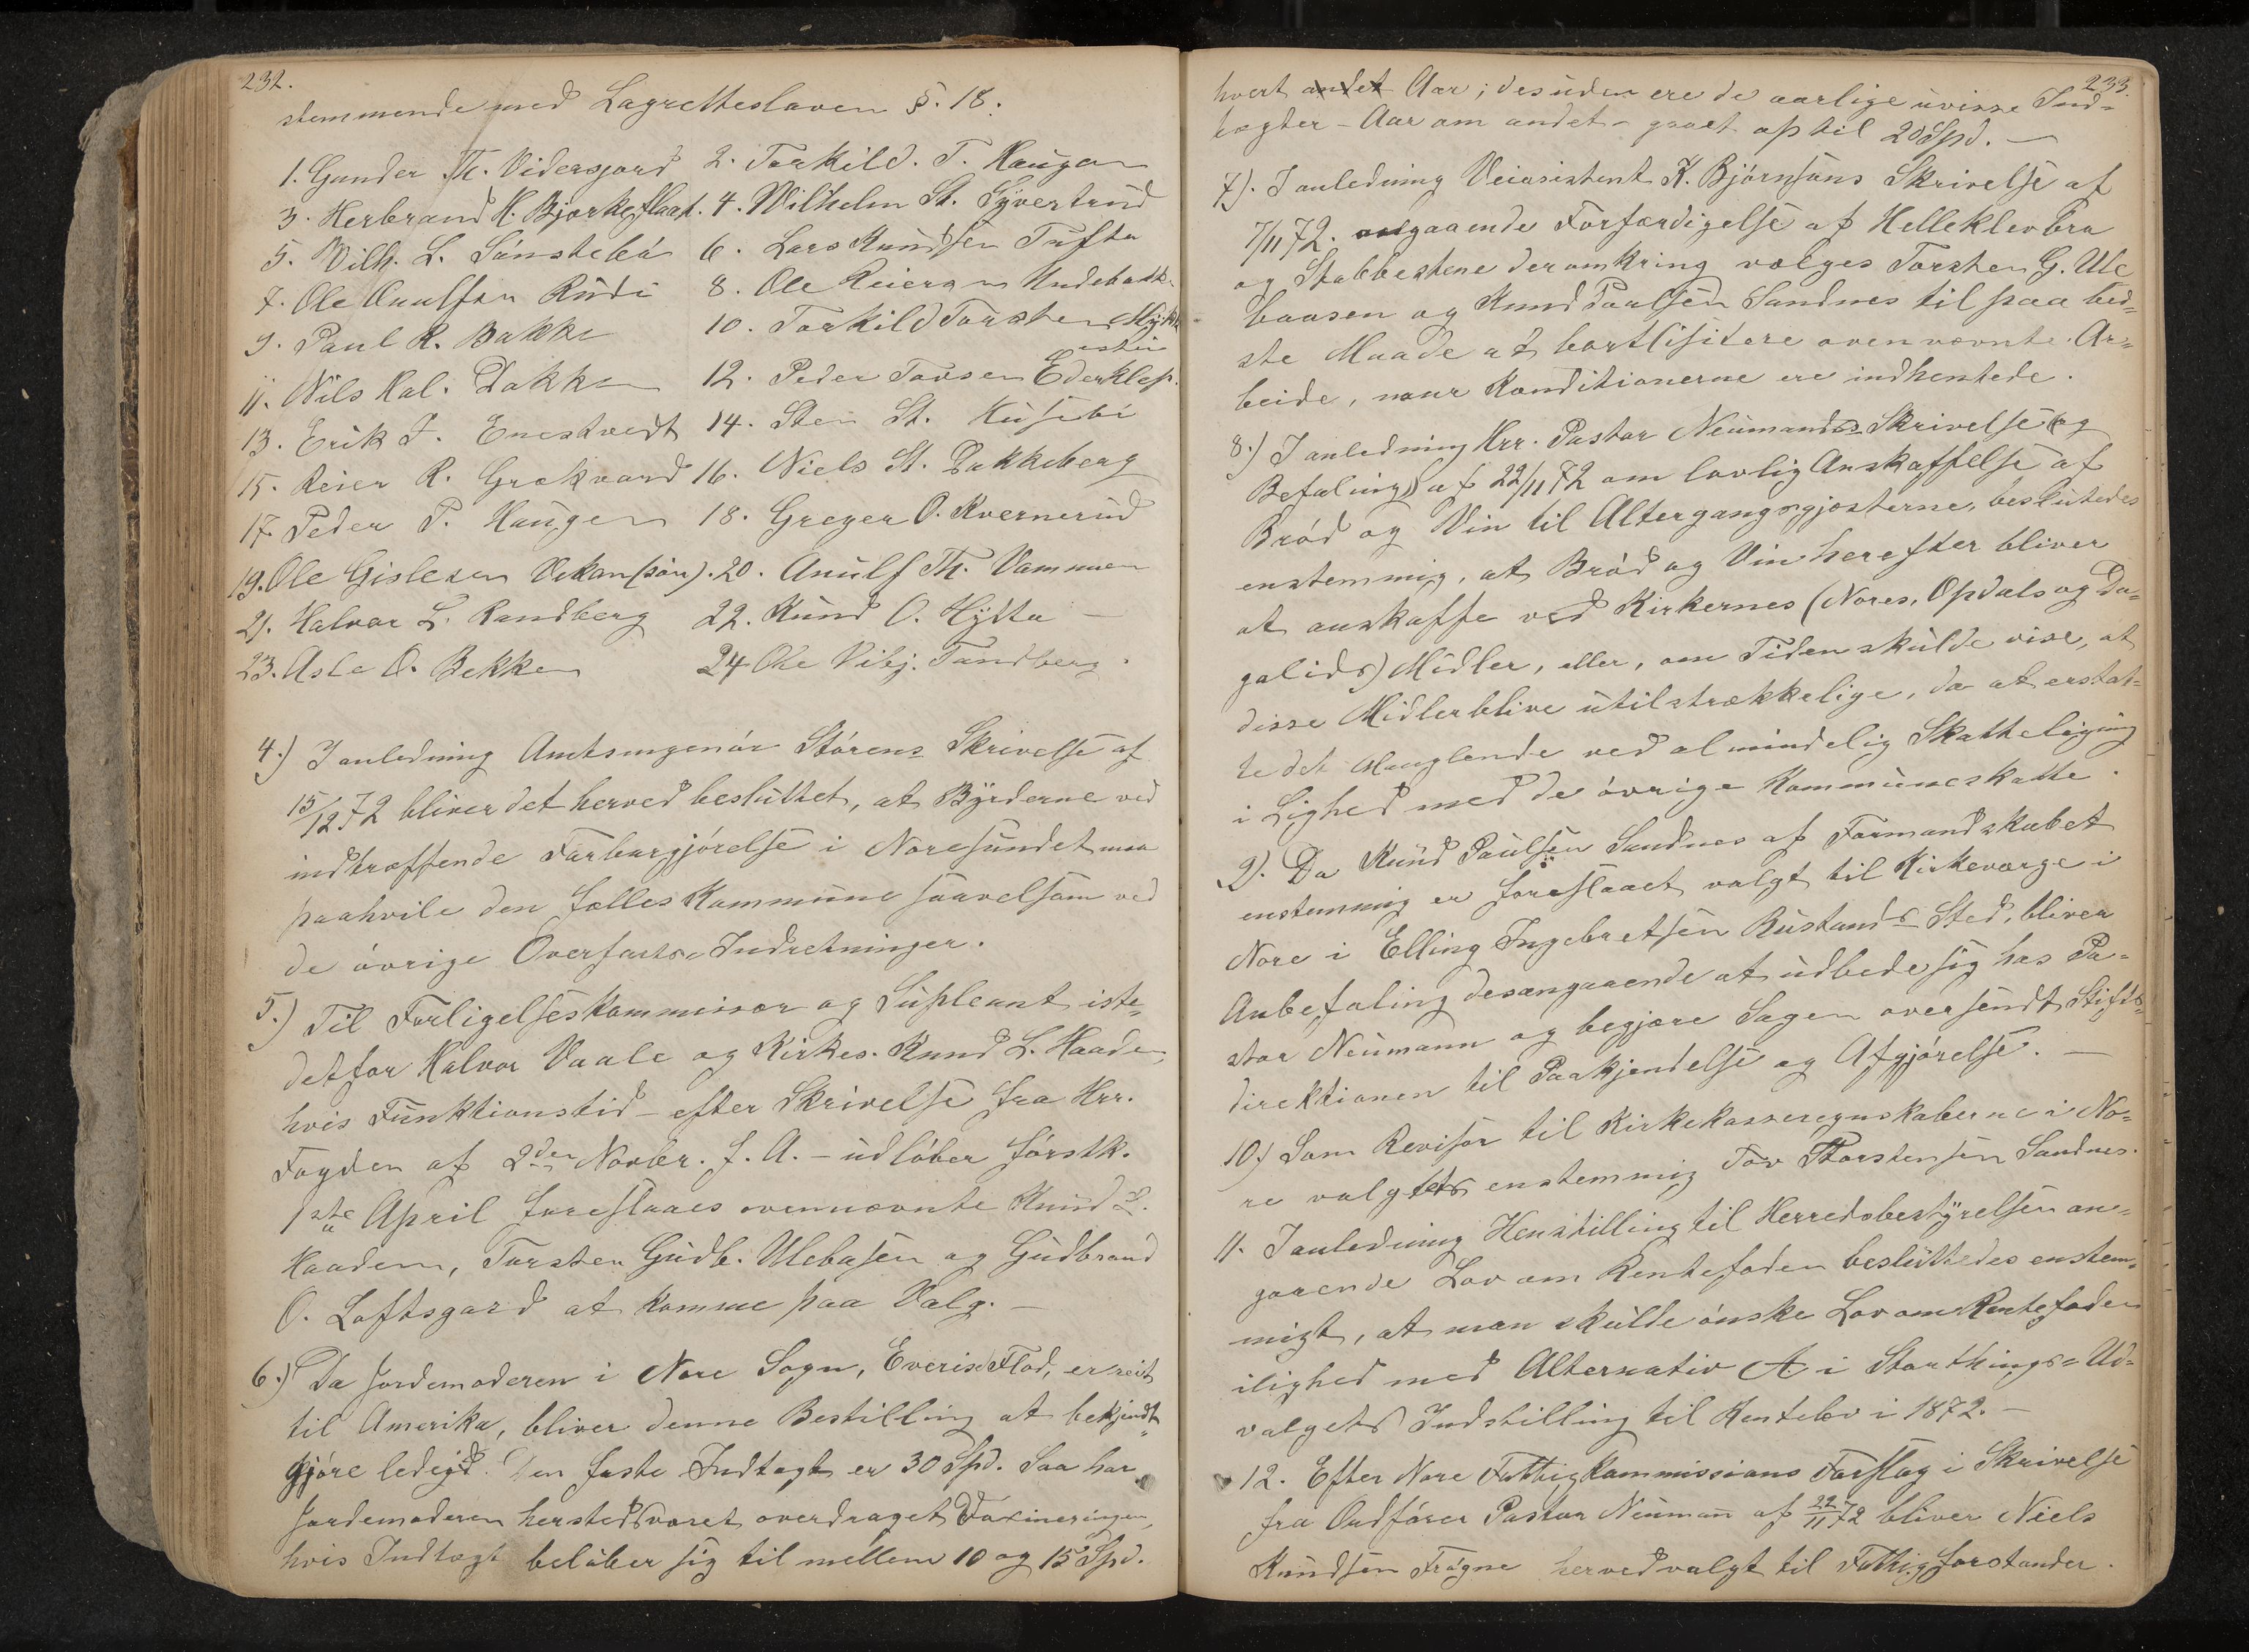 232.
stemmende med Lagretteslaven §. 18.
1. Gunder Th. Vidersgard 2. Torkild. T. Haugan
3. Herbrand H. Bjørkeflaat. 4. Wilhelm St. Syvertrud
5. Vilh. L. Sønstebø 6. Lars Knudsen Tufta
7. Ole Ounlfsen Rudi 8. Ole Reiersen Undebakk.
9. Paul R. Bakke 10. Torkild Torsten Myhr
estu
11. Nils Hal. Dokken 12. Peder Tovsen Ederklep.
13. Erik J. Enestvedt 14. Sten St. Husebi
15. Reier R. Grøkvard 16. Niels St. Bakkeberg
17 Peder P. Haugen 18. Greger O. Kvernerud
19. Ole Gislesen Vekan (søre). 20. Anulf Th. Vammen
21. Halvor L. Randberg 22. Knud O. Hytta —
23. Asle O. Bekken 24 Ole Vibj. Tandberg.
4.) I anledning Amtsingenør Størens Skrivelse af
15/12 72 bliver det herved besluttet, at Byrderne ved
indtræffende Farbargjørelse i Noresundet maa
paahvile den fælles Kommune saavelsom ved
de øvrige Overfarts-Indretninger.
5.) Til Forligelseskommissær og Supleant iste-
detfor Halvor Vaale og Kirkes. Knud L. Haaden,
hvis Funktionstid – efter Skrivelse fra Hrr.
Fogden af 2den Novbr. f. A. – udløber førstk.
1ste April foreslaaes ovennævnte Knud L.
Haadem, Torsten Gudb. Ulebasen og Gudbrand
O. Loftsgard at komme paa Valg. —
6.) Da Jordemoderen i Nore Sogn, Everise Flod, er reist
til Amerika, bliver denne Bestilling at bekjendt-
gjøre ledig. Den faste Indtægt er 30 Spd. Saa har
Jordemoderen hersteds været overdraget Vaxineringen,
hvis Indtægt beløber sig til mellem 10 og 15 Spd.
233.
hvert andet Aar; desuden ere de aarlige uvisse Ind-
tægter – Aar om andet – gaaet op til 20 Spd. —
7). I anledning Veiasistent K. Bjørnsons Skrivelse af
7/11 72. angaaende Forfærdigelse af Helleklevbra
og Stabbestene deromkring vælges Torsten G. Ule
baasen og Knud Paulsen Sandnes til paa bed-
ste Maade at bortlisitere ovennævnte Ar-
beide, naar Konditionerne ere indhentede.
8.) I anledning Hrr. Pastor Neumands Skrivelse (og
Befaling) af 22/11 72 om lovlig Anskaffelse af
Brød og Vin til Altergangsgjæsterne, beslutedes
enstemmig, at Brød og Vin herefter bliver
at anskaffe ved Kirkernes (Nores, Opdals og Da-
galids) Midler, eller, om Tiden skulde vise, at
disse Midler blive utilstrækkelige, da at erstat-
te det Manglende ved almindelig Skatteligning
i Lighed med de øvrige Kommuneskatte.
9). Da Knud Paulsen Sandnes af Formandskabet
enstemmig er foreslaaet valgt til Kirkeværge i
Nore i Elling Ingebretsen Rustands Sted, bliver
Anbefaling desangaaende at udbede sig hos Pa-
stor Neumann og begjære Sagen oversendt Stifts-
direktionen til Paakjendelse og Afgjørelse. —
10.) Som Revisor til Kirkekasseregnskaberne i No-
re valgtes enstemmig Tov Thorstensen Sandnes.
11. I anledning Henstilling til Herredsbestyrelsen an-
gaaende Lov om Rentefoden besluttedes enstem-
migt, at man skulde ønske Lov om Rentefoden
i lighed med Alternativ A i Storthings-Ud-
valgets Indstilling til Rentelov i 1872. —
12. Efter Nore Fattigkommissions Forslag i Skrivelse
fra Ordfører Pastor Neuman af 22/11 72 bliver Niels
Knudsen Frøgne herved valgt til Fattigforstander.